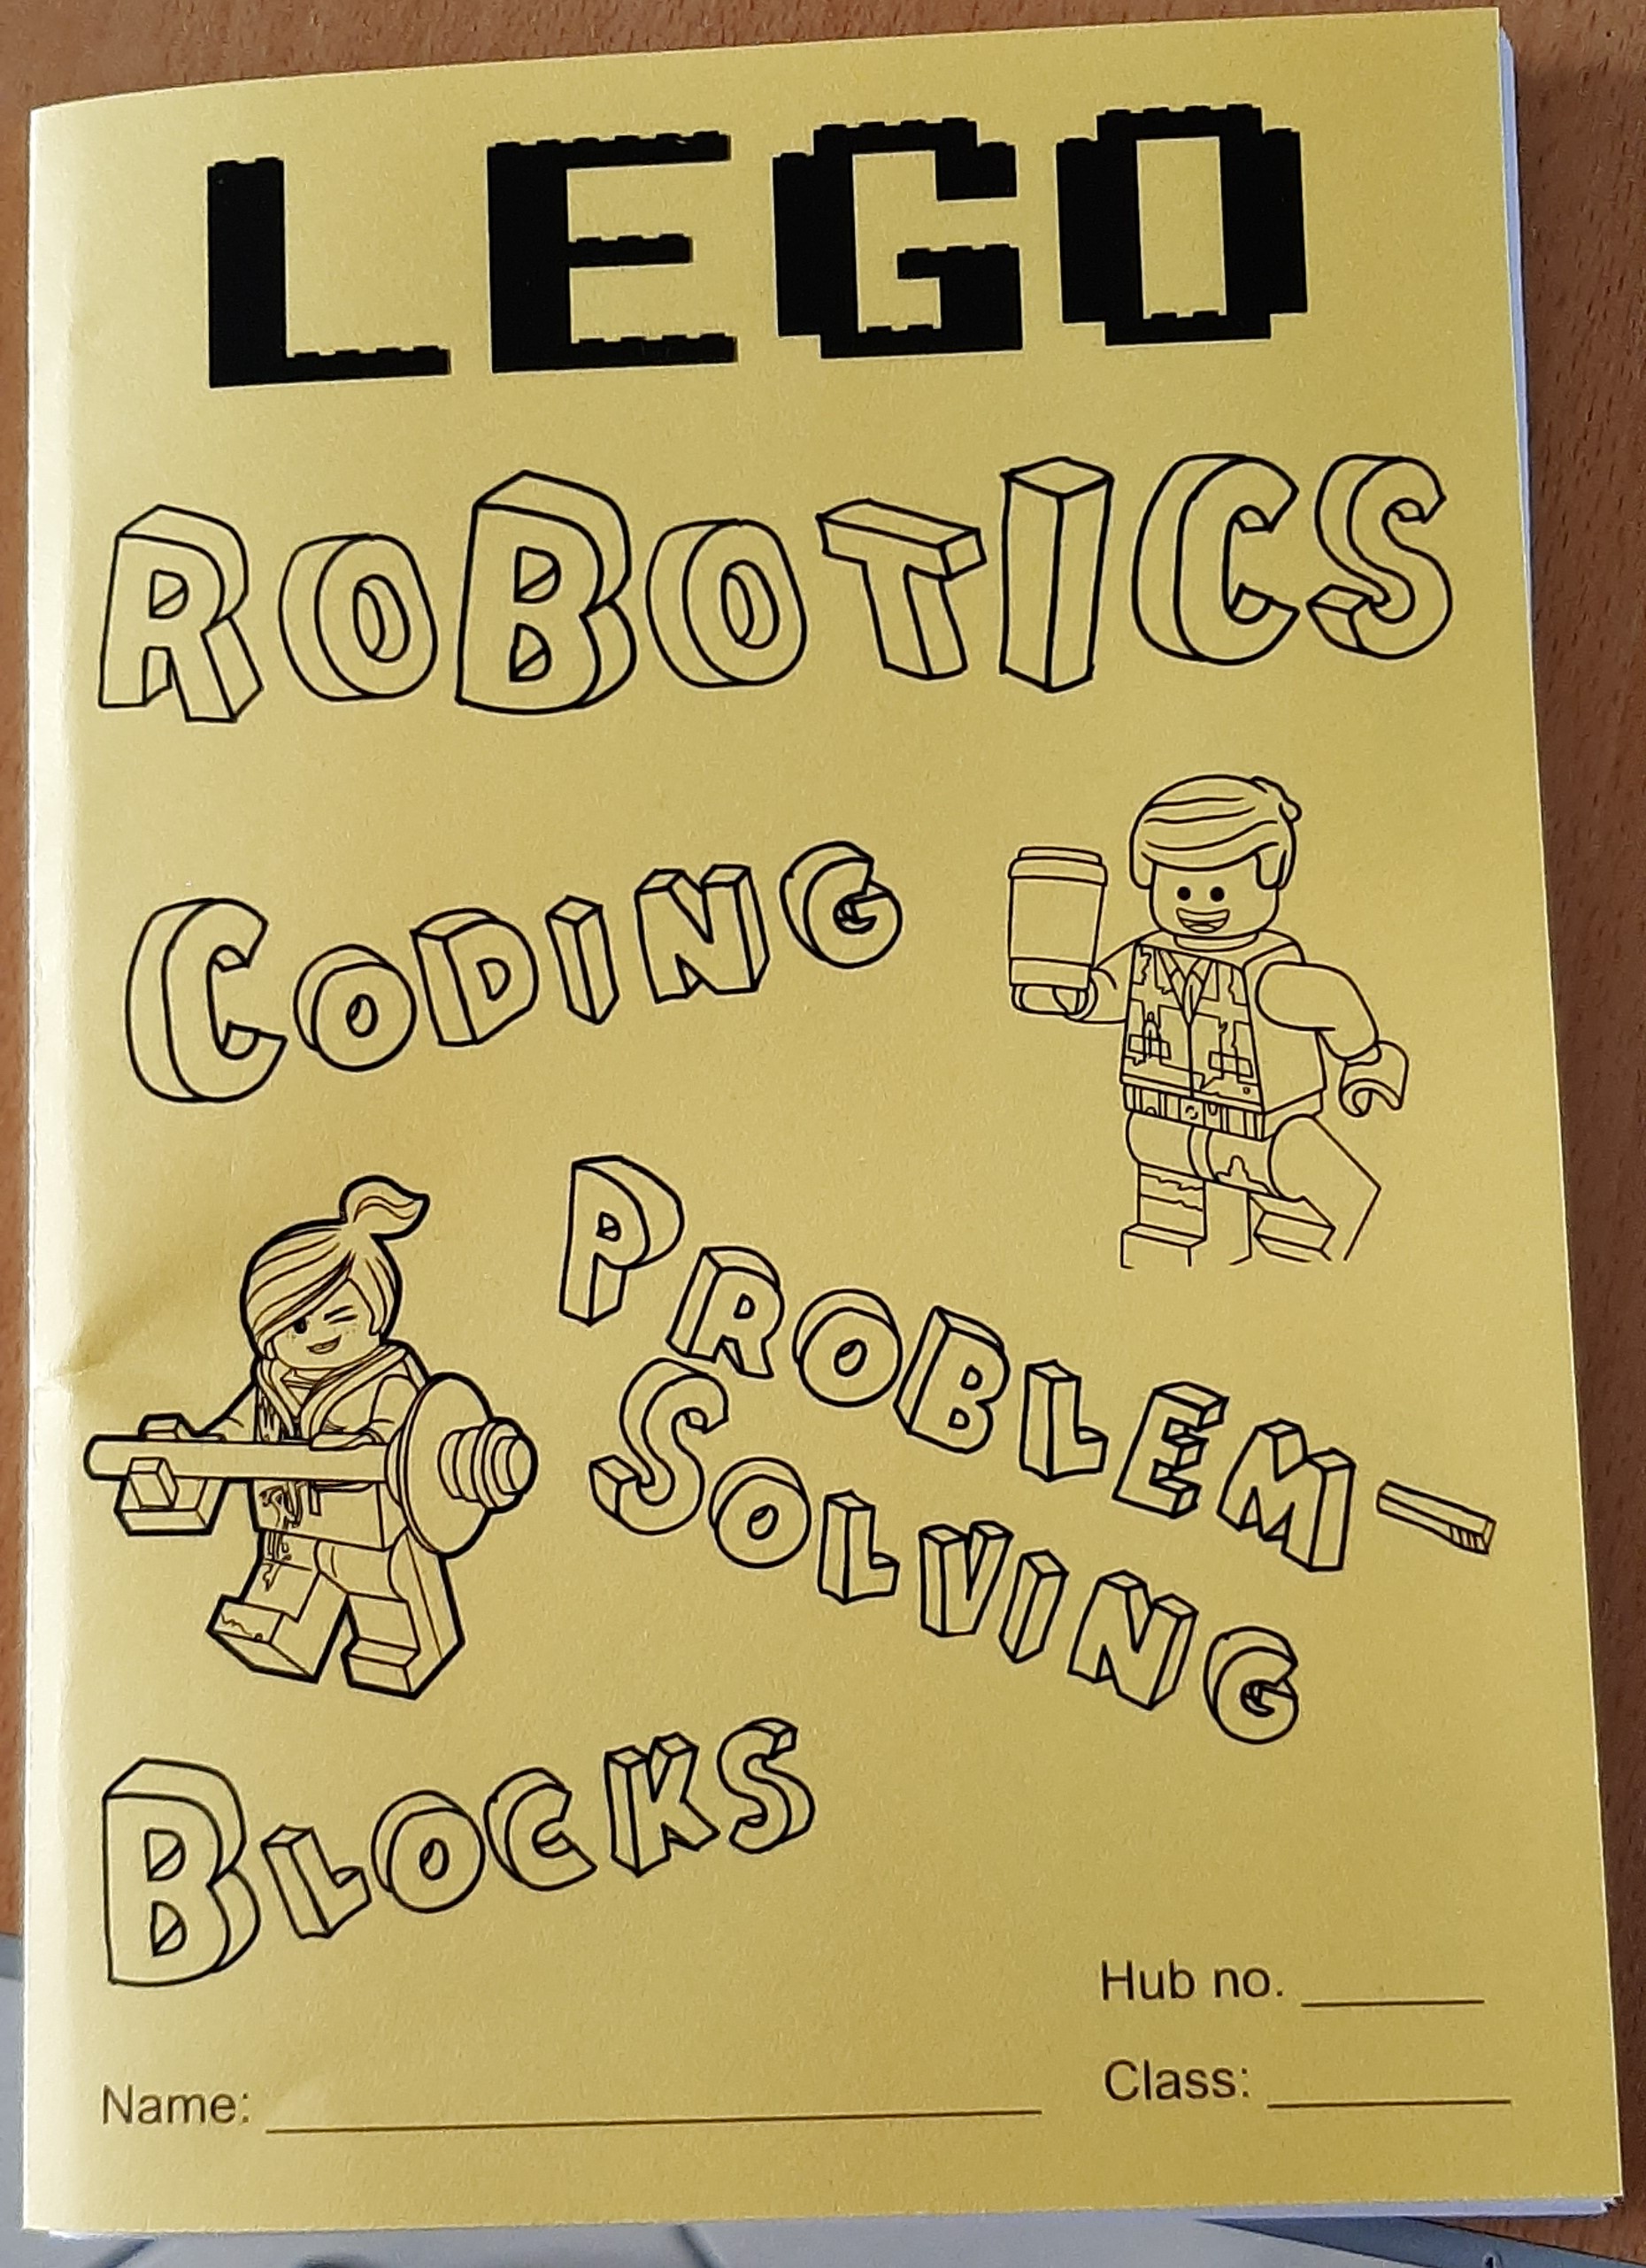 LEGO
ROBOTICS
CODING
PROBLEM-
SOLVING
BLOCKS
Hub no. ______
Class: ________
Name: __________________________